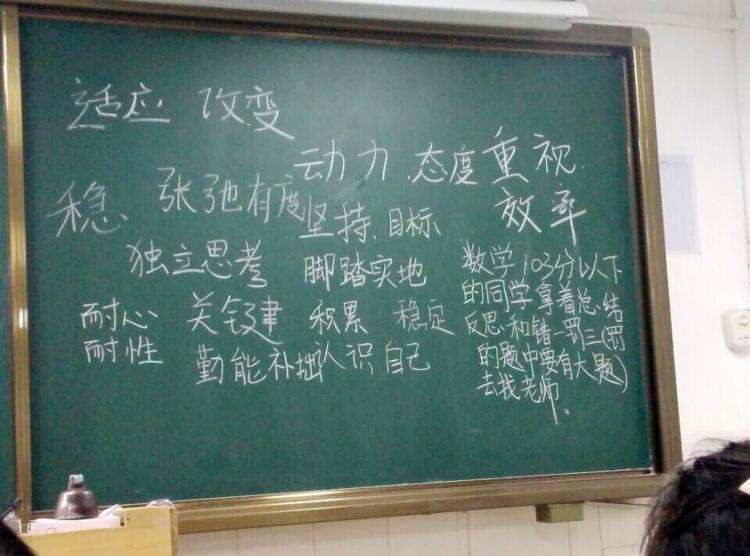 适应 改变
动力 态度 重视
稳 张弛有度 坚持 目标 效率
独立思考 脚踏实地
耐心 关键 积累 稳定
耐性 勤能补拙 认识自己
数学103分以下
的同学拿着总结
反思和错一罚三(罚
的题中要有大题)
去找老师。